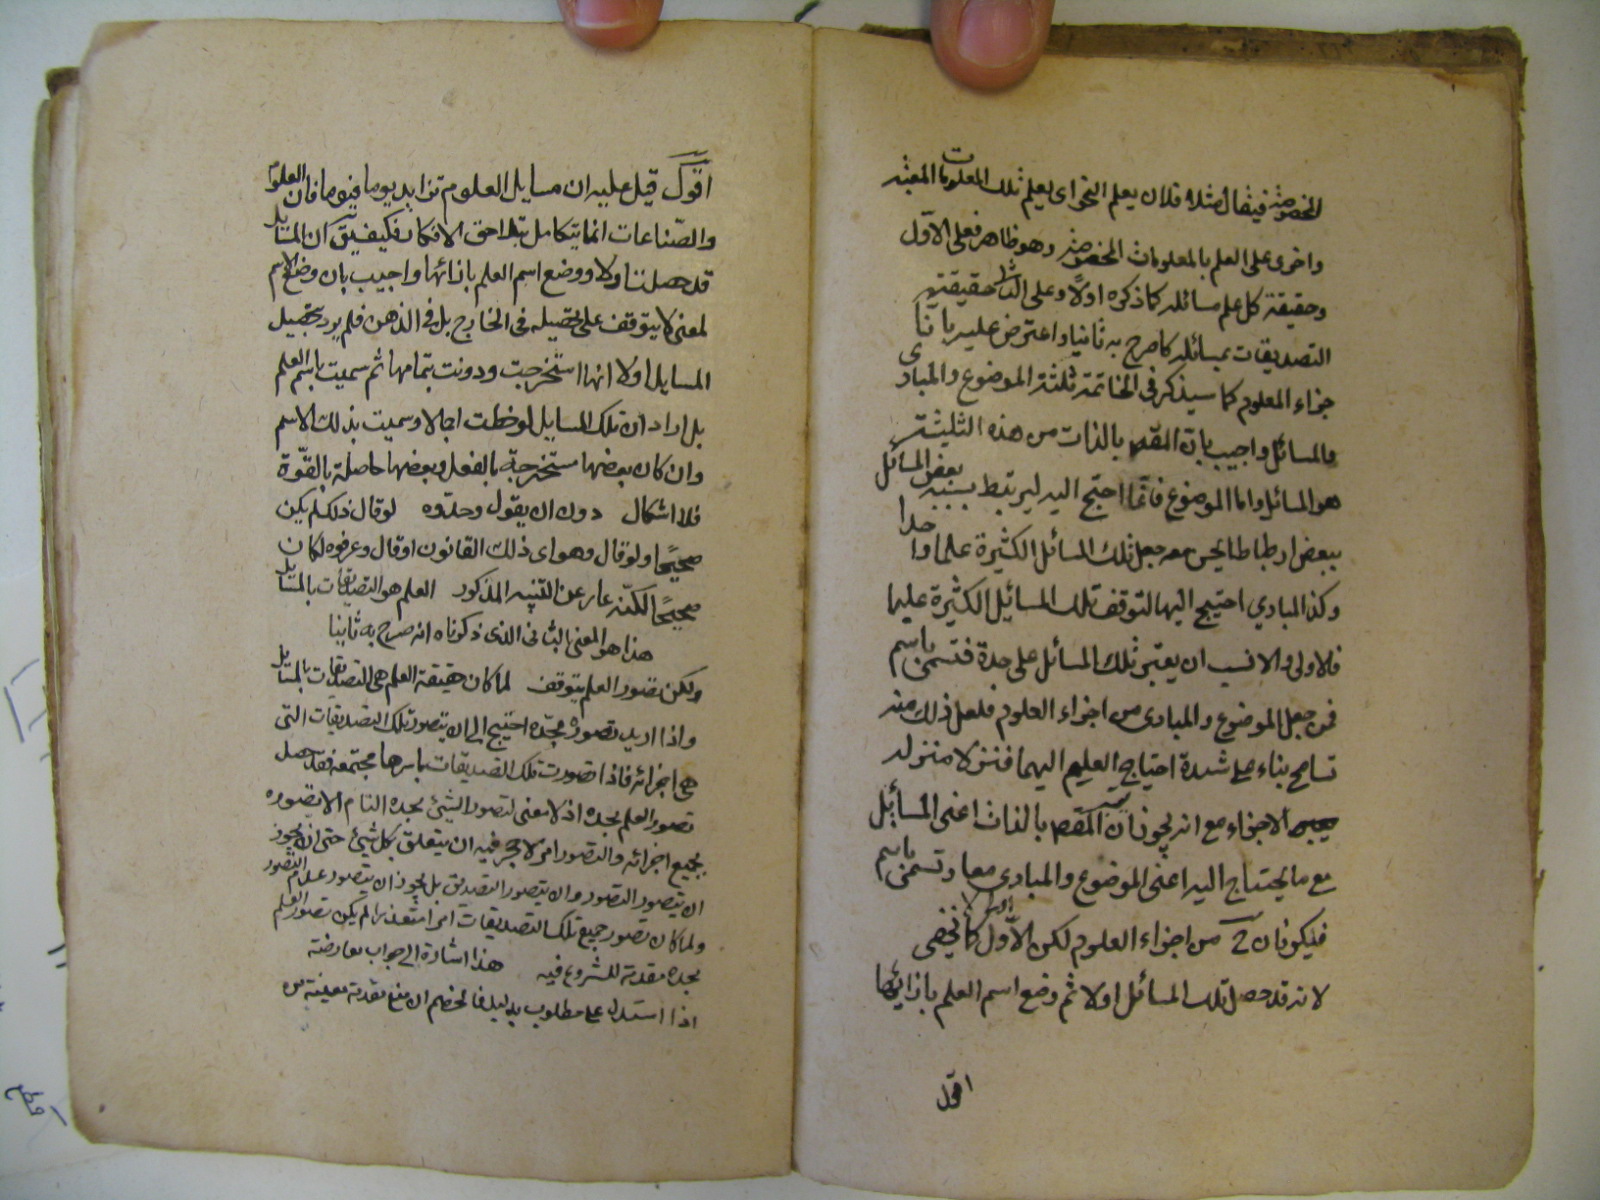 المخصوصة فيقال مثلا فلان يعلم النحو اى يعلم تلك المعلومات المعينة
واخرى على العلم بالمعلومات المخصوصة وهو ظاهر فعلى الاول
وحقيقة كل علم مسائله كما ذكره اولا وعلى الثانى حقيقته
التصديقات بمسائله كما صرح به ثانيا واعترض عليه بان
جزاء العلوم كما سيذكر فى الخاتمة ثلثة الموضوع والمبادى
والمسائل واجيب بان المقصد بالذات من هذه الثلثة
هو المسائل واما الموضوع فانما احتج اليه ليرتبط بسببه بعض المسائل
ببعض ارتباطا يحسن معه جعل تلك المسائل الكثيرة علما واحدا
وكذا المبادي احتيج اليها لتوقف تلك المسائل الكثيرة عليها
فالاولى والانسب ان يعتبر تلك المسائل على حدة فتسمى باسم
فمن جعل الموضوع والمبادى من اجزاء العلوم فلعل ذلك منه
تسامح بناء على شدة احتياج العلم اليهما فنزلا منزلة
الاجزاء مع انه يجوز ان المقصد بالذات اعنى المسائل
مع ما يحتاج اليه اعنى الموضوع والمبادى معا وتسمى باسم
فيكونان ح من اجزاء العلوم لكن الاول كما لا يخفى
لانه قد حصل تلك المسائل اولا ثم وضع اسم العلم بازائها
اقول
اقول قيل عليه ان مسايل العلوم تزايد يوما فيوما فان العلوم
والصناعات انما يتكامل بتلاحق الافكار فكيف يق ان المسايل
قد حصلت اولا ووضع اسم العلم بازائها واجيب بان وضع الاسم
لمعنى لا يتوقف على تحصيله فى الخارج بل فى الذهن فلم يرد بتحصيل
المسايل اولا انها استخرجت ودونت بتمامها ثم سميت باسم العلم
بل اراد ان تلك المسايل لوحظت اجمالا وسميت بذلك الاسم
وان كان بعضها مستخرجة بالفعل وبعضها حاصلة بالقوة
فلا اشكال دون ان يقول وحدوه لو قال ذلك لم يكن
صحيحا ولو قال وهو اى ذلك القانون او قال وعرفوه لكان
صحيحا لكنه عار عن التنبيه المذكور العلم هو التصديقات بالمسايل
هذا هو المعنى الثانى الذى ذكرناه انه صرح به ثانيا
ولكن تصور العلم يتوقف لما كان حقيقة العلم هى التصديقات بالمسايل
واذا اريد تصوره بحده احتيج الى ان يتصور تلك التصديقات التى
هى اجزائه فاذا تصورت تلك التصديقات باسرها مجتمعة فقد حصل
تصور العلم بحده اذ لا معنى لتصور الشيئ بحده التام الا تصوره
بجميع اجزائه والتصور امر لا حجر فيه ان يتعلق بكل شيئ حتى انه يجوز
ان يتصور التصور وان يتصور التصديق بل يجوز ان يتصور عدم التصور
ولما كان تصور جميع تلك التصديقات امرا متعذرا لم يكن تصور العلم
بحده مقدمة للشروع فيه هذا اشارة الى جواب معارضة
اذا استدل على مطلوب بدليل فالخصم ان منع مقدمة معينة من